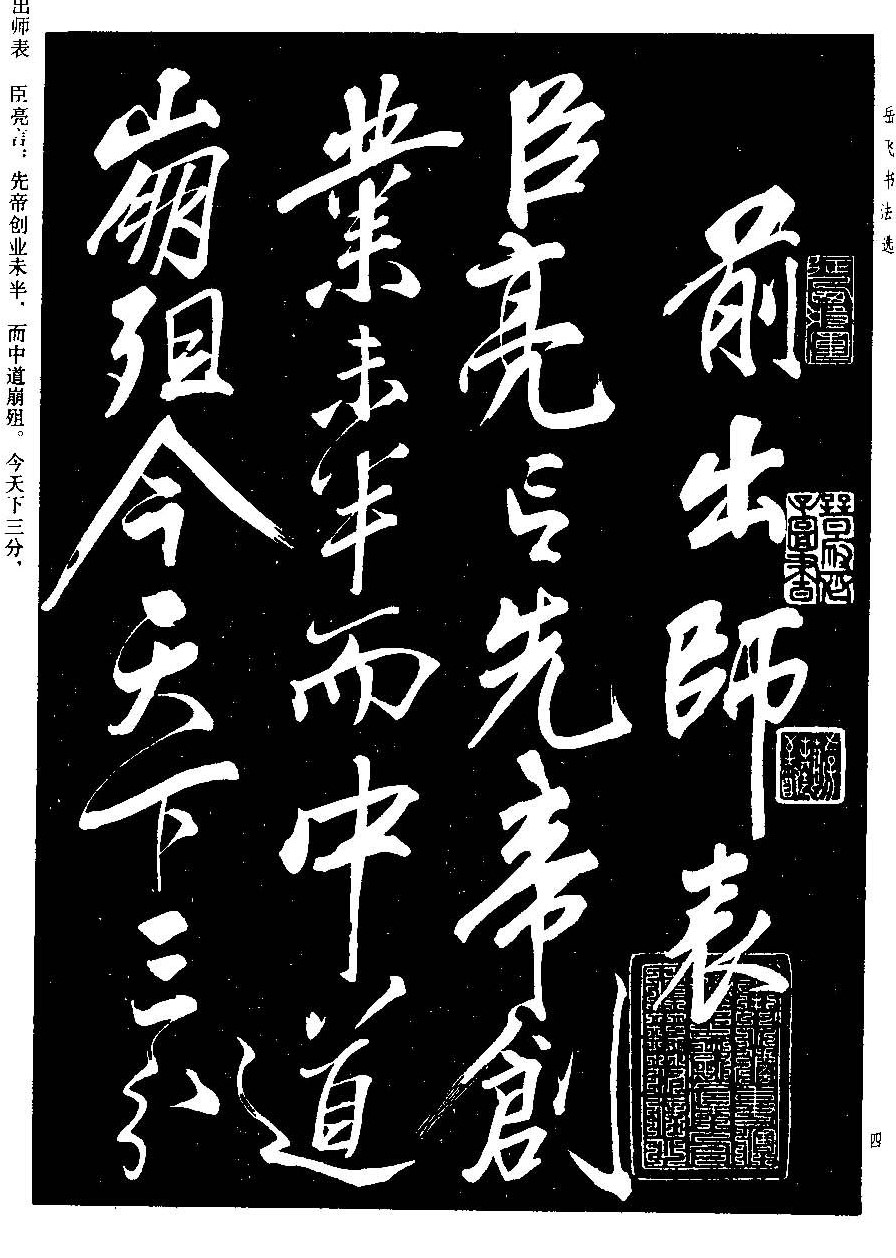 岳飞书法选
前出師表
臣亮言先帝創
業未半而中道
崩殂今天下三分
出师表 臣亮言：先帝创业未半，而中道崩殂。今天下三分，
四